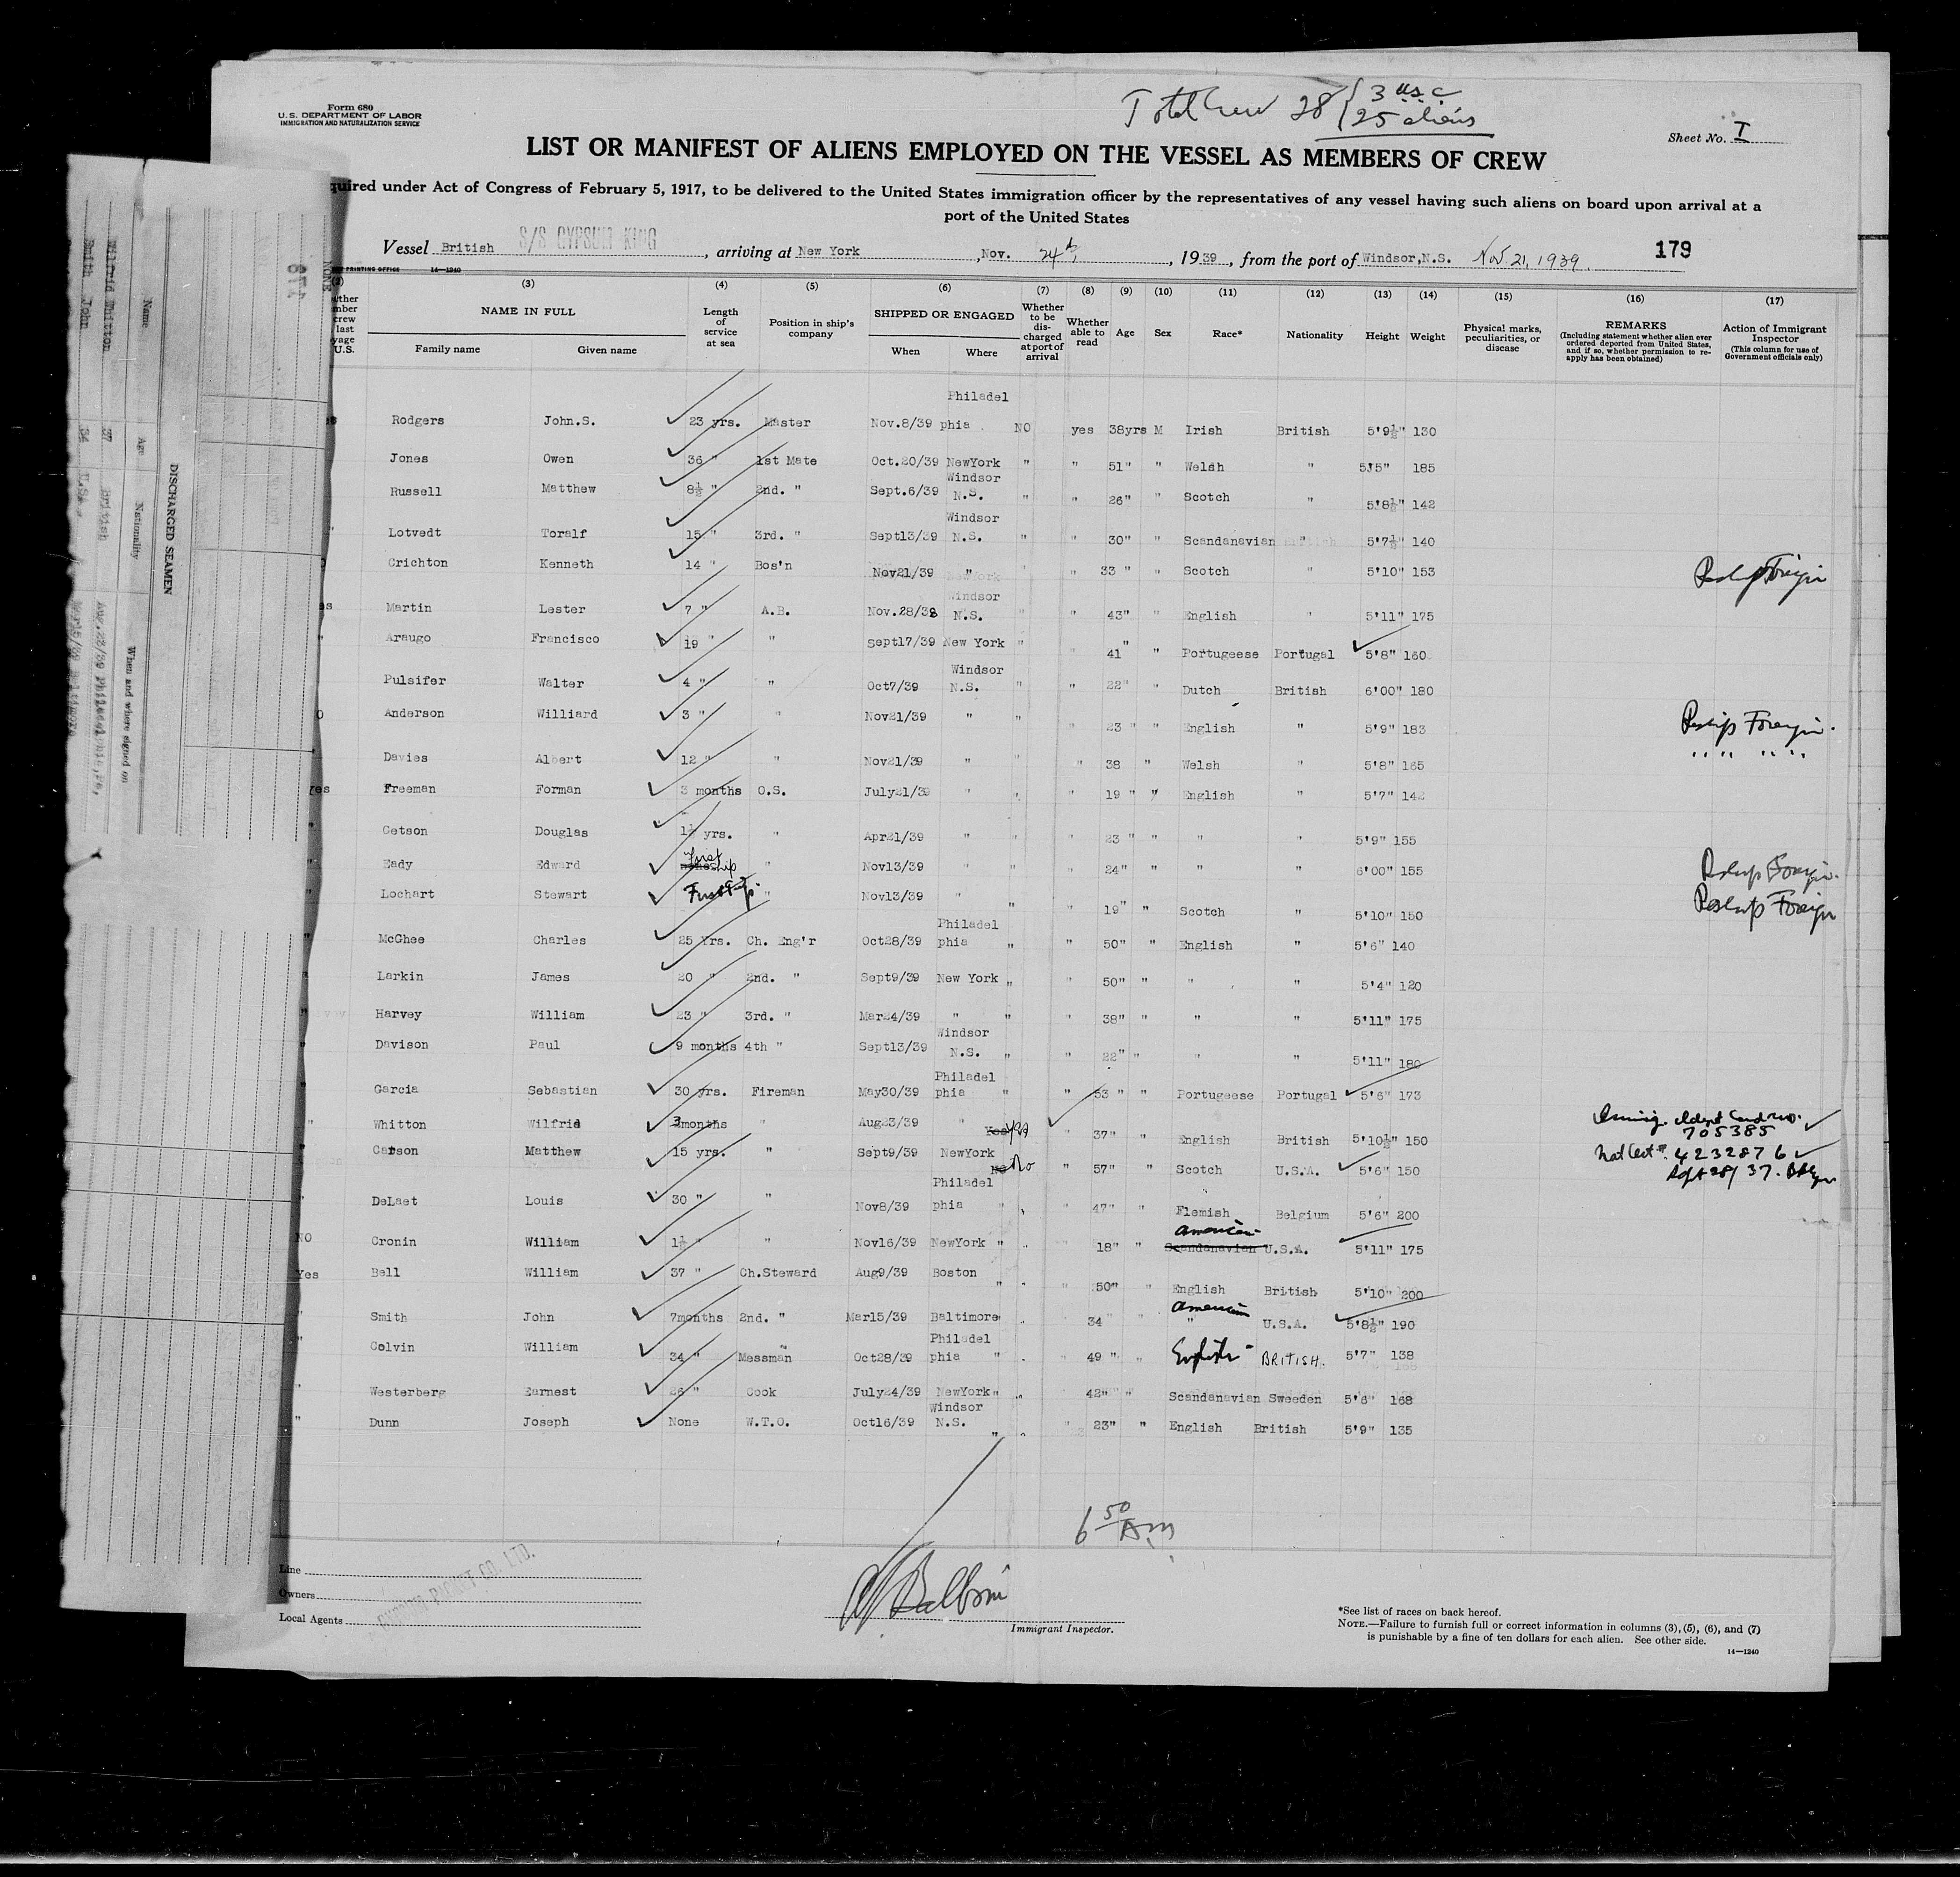 Total Crew 28 { 3 U.S.C
25 aliens
Form 680
U.S. DEPARTMENT OF LABOR
IMMIGRATION AND NATURALIZATION SERVICE
Sheet No. I
LIST OR MANIFEST OF ALIENS EMPLOYED ON THE VESSEL AS MEMBERS OF CREW
quired under Act of Congress of February 5, 1917, to be delivered to the United States immigration officer by the representatives of any vessel having such aliens on board upon arrival at a
port of the United States
Vessel British S/S GYPSUM KING, arriving at New York, Nov. 24th, 1939, from the port of Windsor,N.S. Nov 21, 1939. 179
PRINTING OFFICE 14—1240
(3) (4) (5) (6) (7) (8) (9) (10) (11) (12) (13) (14) (15) (16) (17)
NAME IN FULL
Family name Given name
Length of service at sea
Position in ship's company
SHIPPED OR ENGAGED
When Where
Whether to be discharged at port of arrival
Whether able to read
Age Sex Race* Nationality Height Weight
Physical marks, peculiarities, or disease
REMARKS
(Including statement whether alien ever ordered deported from United States, and if so, whether permission to reapply has been obtained)
Action of Immigrant Inspector
(This column for use of Government officials only)
Rodgers John.S. 23 yrs. Master Nov.8/39 Philadelphia NO yes 38yrs M Irish British 5'9½" 130
Jones Owen 36 " 1st Mate Oct.20/39 NewYork " " 51" " Welsh " 5'5" 185
Russell Matthew 8½ " 2nd. " Sept.6/39 Windsor N.S. " " 26" " Scotch " 5'8½" 142
Lotvedt Toralf 15 " 3rd. " Sept13/39 Windsor N.S. " " 30" " Scandanavian " 5'7½" 140
Crichton Kenneth 14 " Bos'n Nov21/39 " " " 33 " " Scotch " 5'10" 153 Reship Foreign
Martin Lester 7 " A.B. Nov.28/38 Windsor N.S. " " 43" " English " 5'11" 175
Araugo Francisco 19 " " Sept17/39 New York " " 41 " " Portugeese Portugal 5'8" 160
Pulsifer Walter 4 " " Oct7/39 Windsor N.S. " " 22" " Dutch British 6'00" 180
Anderson Williard 3 " " Nov21/39 " " " 23 " " English " 5'9" 183 Reship Foreign.
Davies Albert 12 " " Nov21/39 " " " 38 " Welsh " 5'8" 165 " " " "
yes Freeman Forman 3 months O.S. July21/39 " " " 19 " " English " 5'7" 142
" Getson Douglas 1½ yrs. " Apr21/39 " " " 23 " " " " 5'9" 155
" Eady Edward first ship " Nov13/39 " " " 24" " " " 6'00" 155 Reship Foreign.
" Lochart Stewart First Trip " Nov13/39 " " " 19" " Scotch " 5'10" 150 Reship Foreign
" McGhee Charles 25 Yrs. Ch. Eng'r Oct28/39 Philadelphia " " 50" " English " 5'6" 140
" Larkin James 20 " 2nd. " Sept9/39 New York " " 50" " " " 5'4" 120
" Harvey William 23 " 3rd. " Mar24/39 " " " 38" " " " 5'11" 175
" Davison Paul 9 months 4th " Sept13/39 Windsor N.S. " " 22" " " " 5'11" 180
" Garcia Sebastian 30 yrs. Fireman May30/39 Philadelphia " " 53 " " Portugeese Portugal 5'6" 173
" Whitton Wilfrid 3months " Aug23/39 " Yes " 37" " English British 5'10½" 150 705385
" Carson Matthew 15 yrs. " Sept9/39 NewYork No " 57" " Scotch U.S.A. 5'6" 150 Nat Cert #. 4232876 Sept 28/37. Bklyn
" DeLaet Louis 30 " " Nov8/39 Philadelphia " " 47" " Flemish Belgium 5'6" 200
NO Cronin William 1½ " " Nov16/39 NewYork " " 18" " American Scandanavian U.S.A. 5'11" 175
Yes Bell William 37 " Ch.Steward Aug9/39 Boston " " 50" " English British 5'10" 200
" Smith John 7months 2nd. " Mar15/39 Baltimore " " 34 " " American " U.S.A. 5'8½" 190
" Colvin William 34 " Messman Oct28/39 Philadelphia " " 49 " " English BRITISH. 5'7" 138
" Westerberg Earnest 26 " Cook July24/39 NewYork " " 42" " Scandanavian Sweeden 5'6" 168
" Dunn Joseph None W.T.O. Oct16/39 Windsor N.S. " " 23" " English British 5'9" 135
6 50 AM
Line
Owners
Local Agents
Immigrant Inspector.
*See list of races on back hereof.
NOTE.—Failure to furnish full or correct information in columns (3), (5), (6), and (7)
is punishable by a fine of ten dollars for each alien. See other side.
14—1240
DISCHARGED SEAMEN
Name Age Nationality When and where signed on
Wilfrid Whitton 37 British Aug.23/39 Philadelphia,Pa,
Smith John 34 U.S. Mar15/39 Baltimore